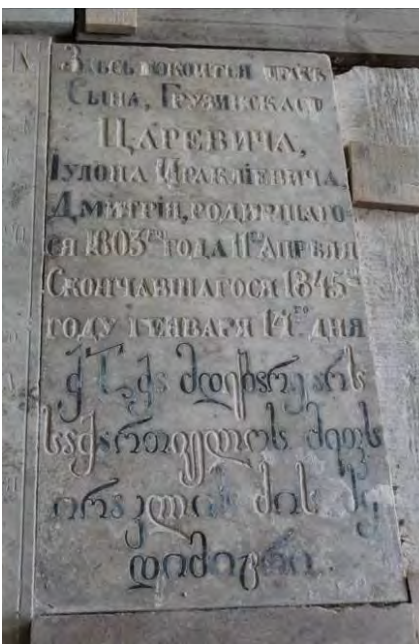 Здѣсь покоится прахъ
Сына, Грузинскаго
ЦАРЕВИЧА,
Іулона Ираклiевича,
Дмитрiй, родившаго-
ся 1803го года 11го Апрѣля
Скончавшагося 1845го
году Генваря 14го дня
მდებარე არს
საქართველოს მეფს
ირაკლის ძის ძე
დიმიტრი